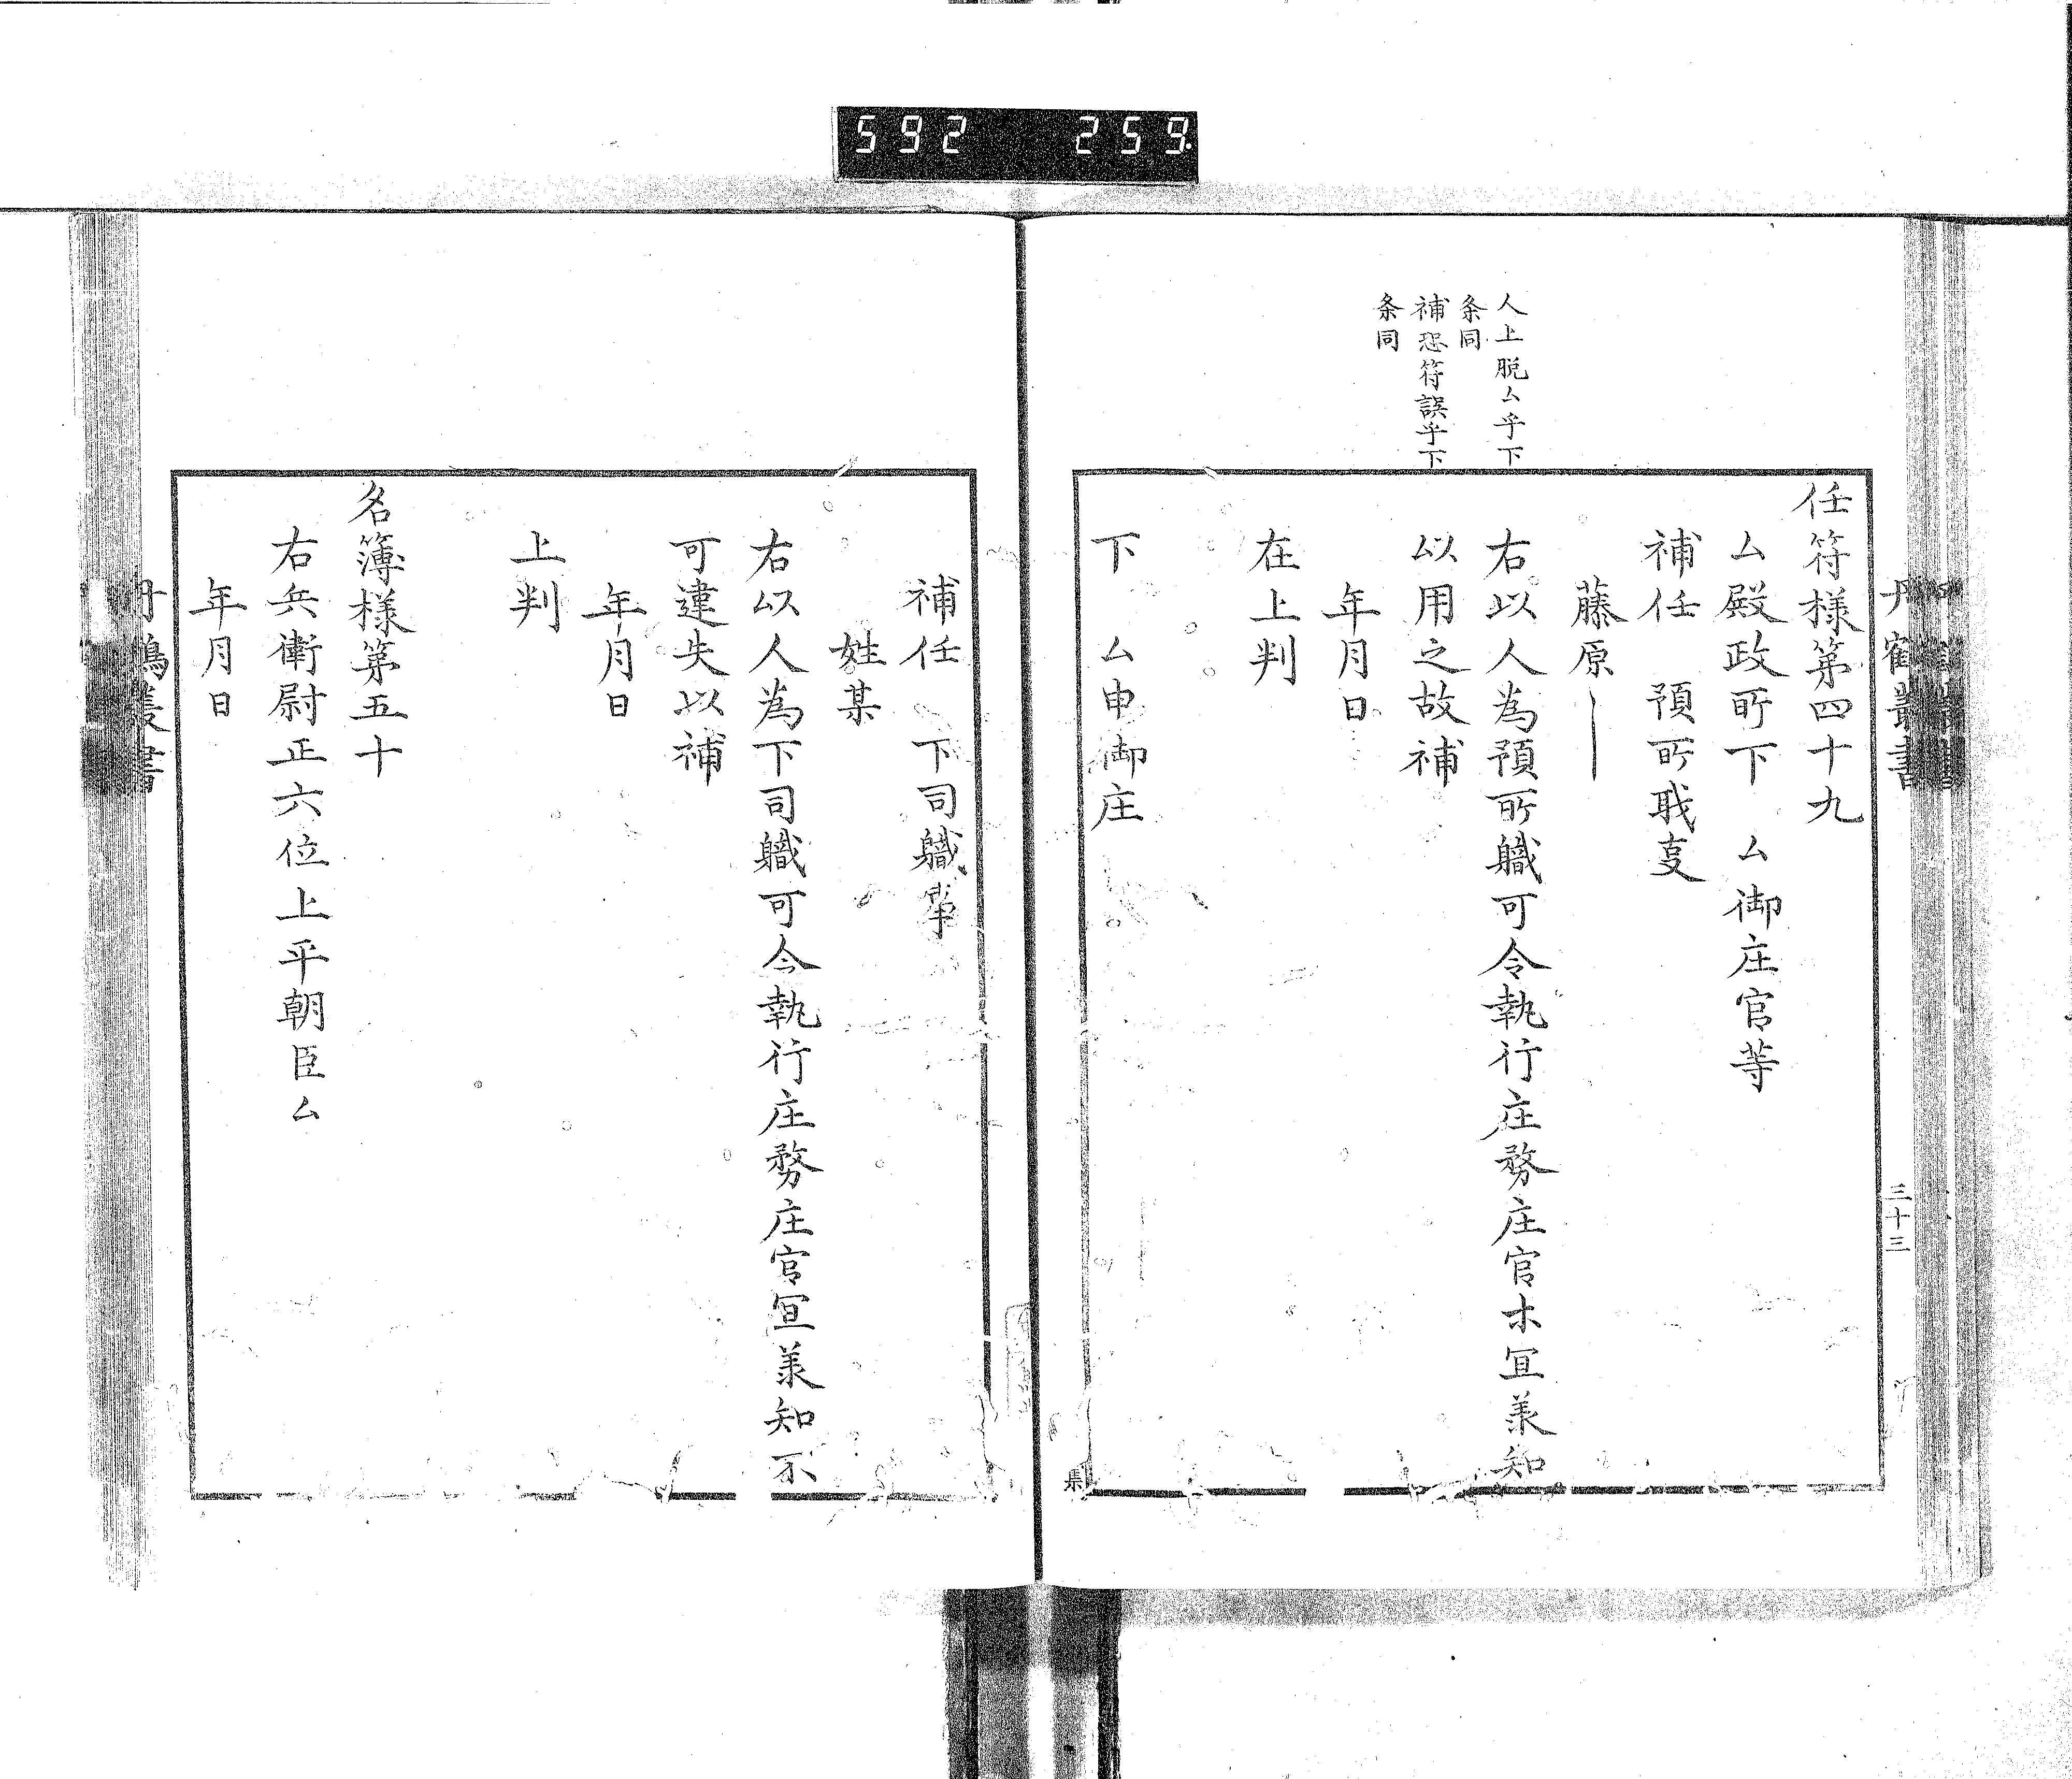 592 259
丹鶴叢書
三十三
人上脱厶乎下
条同
補恐符誤乎下
条同
任符様第四十九
厶殿政所下 厶御庄官等
補任 預所職事
藤原―
右以人為預所職可令執行庄務庄官木冝羕知
以用之故補
年月日
在上判
下 厶申御庄
補任 下司職事
姓某
右以人為下司職可令執行庄務庄官冝羕知不
可違失以補
年月日
上判
名簿様第五十
右兵衛尉正六位上平朝臣厶
年月日
丹鶴叢書